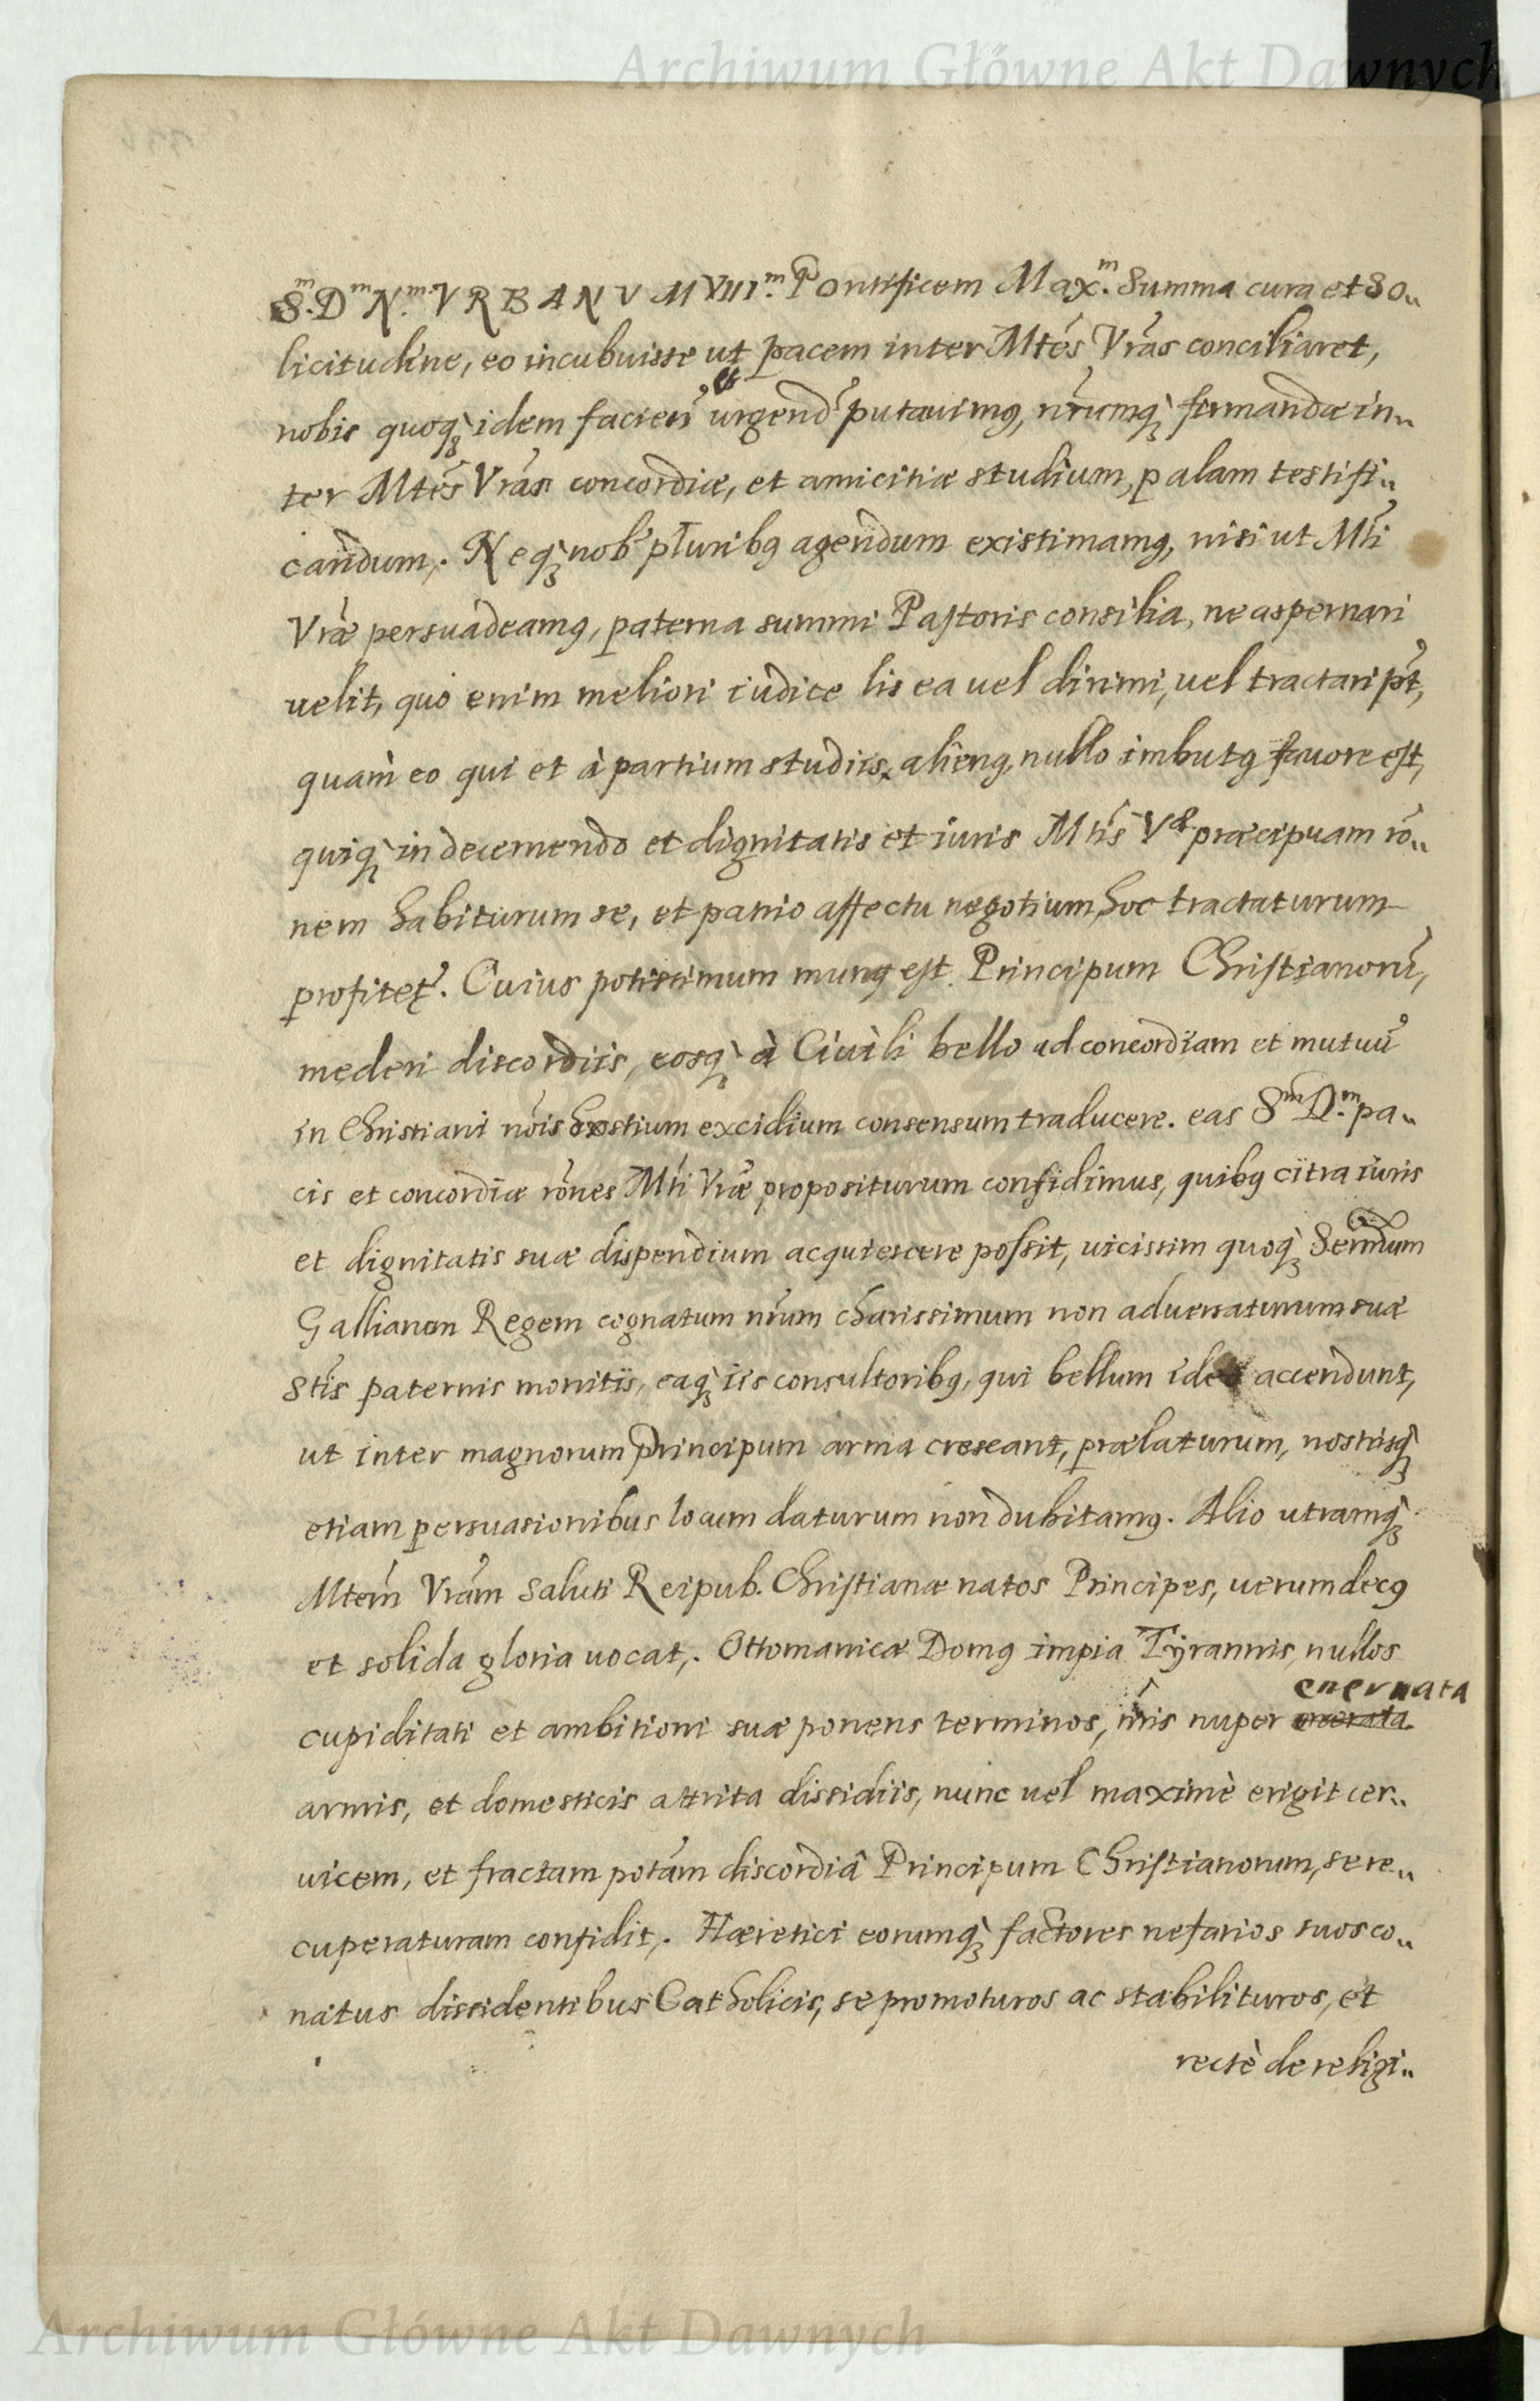 Archiwum Główne Akt Dawnych
S.m Dm N.m VRBANVM VIII.m Pontificem Max.m Summa cura et So„
licitudine, eo incubuisse ut pacem inter Mtés Vrás conciliaret,
nobis quoq; idem facien̄ et urgend̄ putauimꝰ, nr̄umq; firmandæ in„
ter Mtés Vrás concordiæ, et amicitiæ studium, palam testifi„
candum,. Neq; nob̄ pluribꝰ agendum existimamꝰ, nisi ut Mti
Vræ persuadeamꝰ, paterna summi Pastoris consilia, ne aspernari
uelit, quo enim meliori iudice lis ea uel dirimi, uel tractari pt̄,
quam eo qui et à partium studiis, alienꝰ, nullo imbutꝰ fauore est,
quiq; in decernendo et dignitatis et iuris Mtis Væ præcipuam rō„
nem habiturum se, et patrio affectu negotium hoc tractaturum
profitet̄. Cuius potissimum munꝰ est Principum Christianorū,
mederi discordiis, eosq; à Ciuili bello ad concordiam et mutuū
in Christiani nōis hostium excidium consensum traducere. eas Sm D.m pa„
cis et concordiæ rōnes Mti Vræ propositurum confidimus, quibꝰ citra iuris
et dignitatis suæ dispendium acquiescere possit, uicissim quoq; Sermum
Galliarum Regem cognatum nr̄um charissimum non aduersaturum suæ
Stis paternis monitis, eaq; iis consultoribꝰ, qui bellum ideo accendunt,
ut inter magnorum Principum arma crescant, prælaturum, nostrisq;
etiam persuasionibus locum daturum non dubitamꝰ. Alio utramq;
Mtem Vram saluti Reipub. Christianæ natos Principes, uerum decꝰ
et solida gloria uocat,. Ottomanicæ Domꝰ impia Tyrannis, nullos
enervata
cupiditati et ambitioni suæ ponens terminos, nr̄is nuper
armis, et domesticis attrita dissidiis, nunc uel maximè erigit cer„
uicem, et fractam potām discordiâ Principum Christianorum, se re„
cuperaturam confidit,. Hæretici eorumq; factores nefarios suos co„
natus dissidentibus Catholicis, se promoturos ac stabilituros, et
rectè de religi„
Archiwum Główne Akt Dawnych